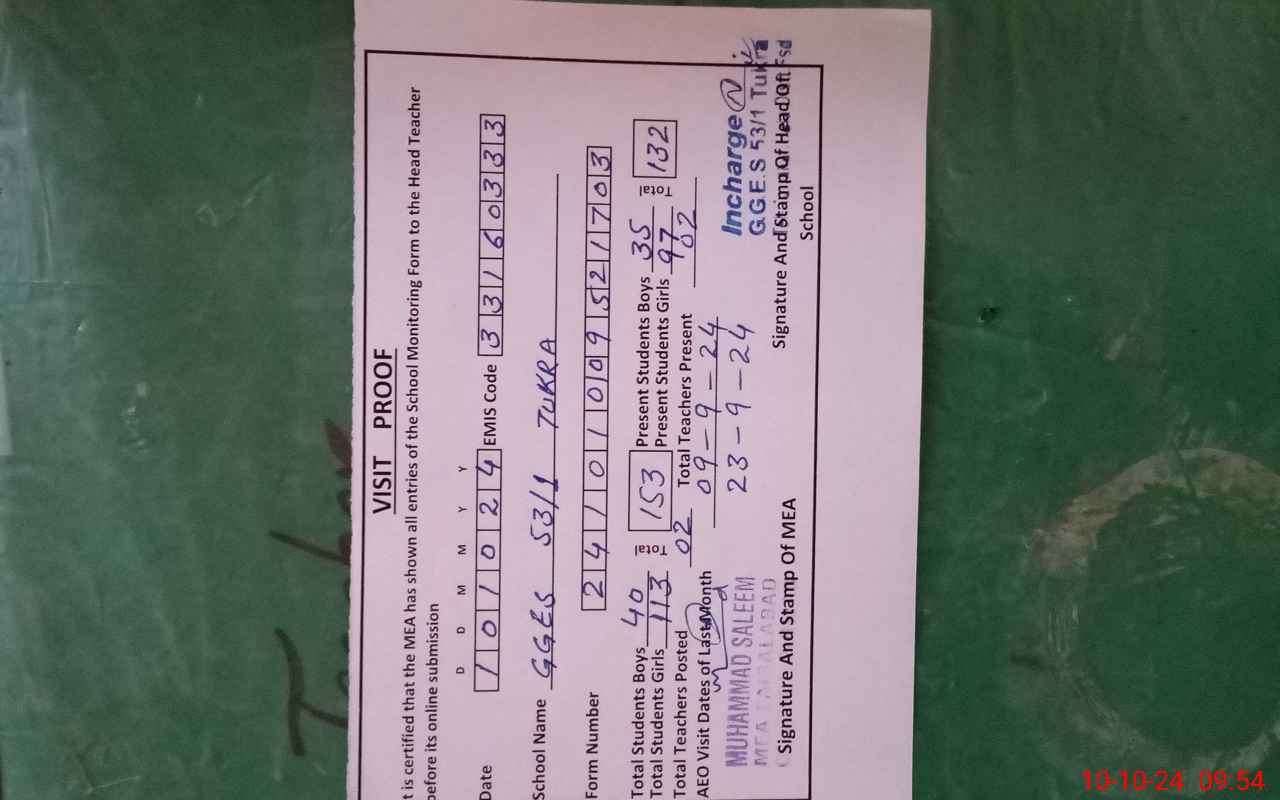 VISIT PROOF
t is certified that the MEA has shown all entries of the School Monitoring Form to the Head Teacher
before its online submission
D D M M Y Y
Date 101024 EMIS Code 33160333
School Name GGES 53/1 TUKRA
Form Number 24101009521703
Total Students Boys 40 Total 153 Present Students Boys 35 Total 132
Total Students Girls 113 Present Students Girls 97
Total Teachers Posted 02 Total Teachers Present 02
AEO Visit Dates of Last Month 09-9-24
23-9-24
MUHAMMAD SALEEM
MEA FAISALABAD
Signature And Stamp Of MEA
Incharge
G.G.E.S 53/1 Tukra
Signature And Stamp Of Head Of
School
10-10-24 09:54